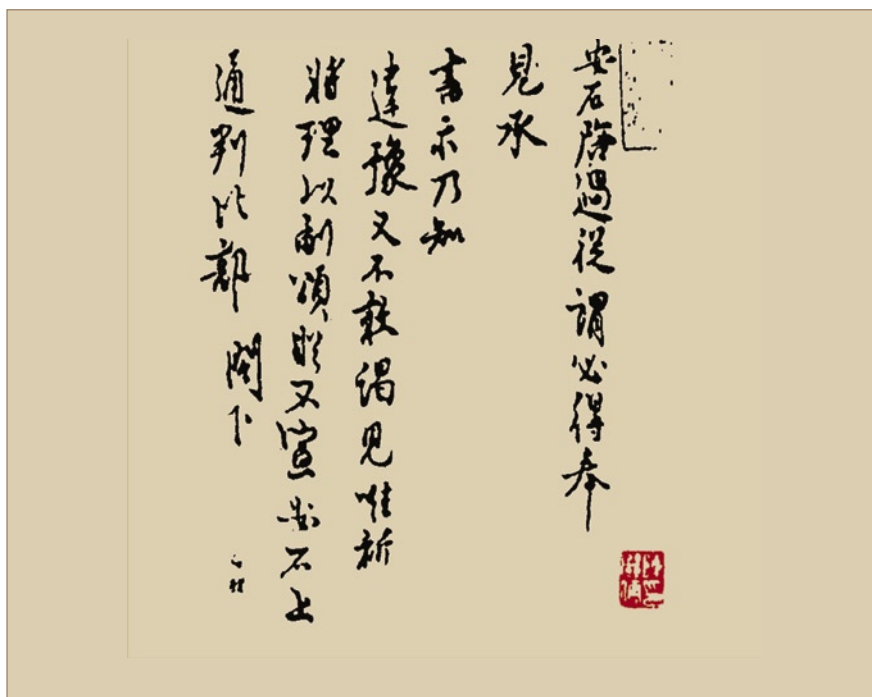 安石啟過從謂必得奉
見承
書示乃知
違豫又不敢謁見唯祈
將理以副頌不宣安石上
通判比部 閣下